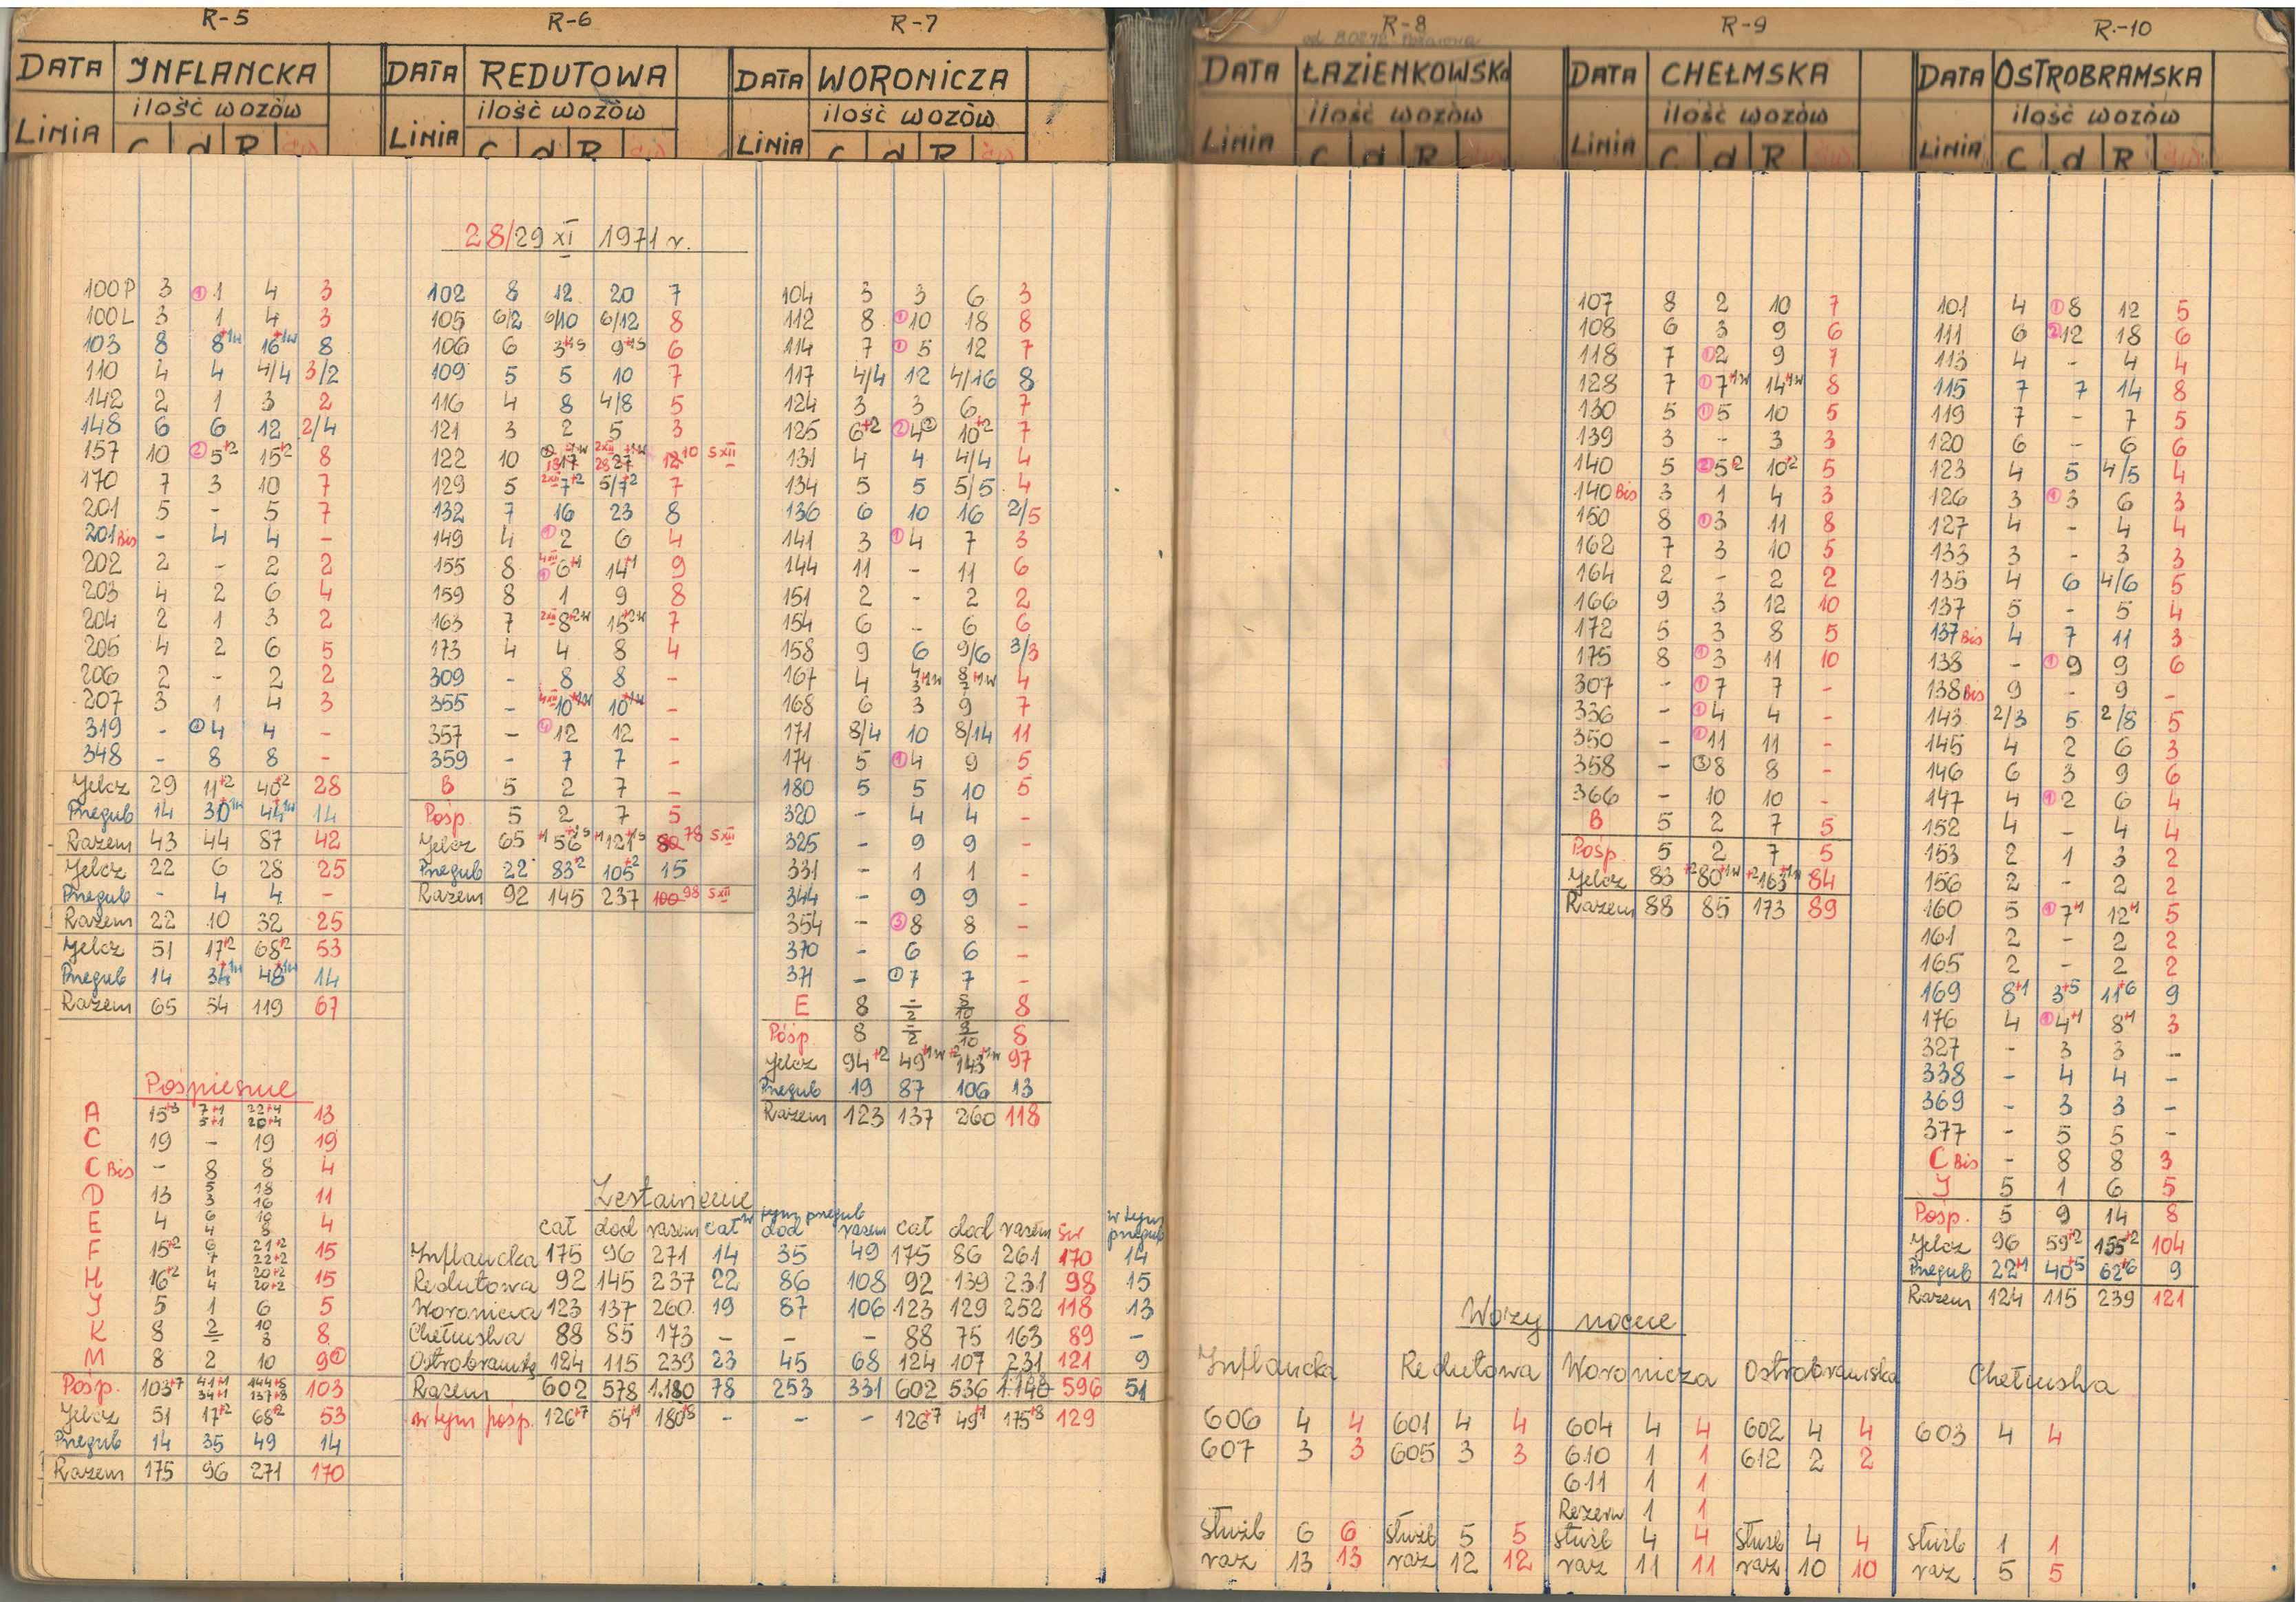 R-5
DATA INFLANCKA
ilość wozów
LINIA C d R
28/29 XI 1971 r.
100P 3 ① 1 4 3
100L 3 1 4 3
103 8 8+1w 16+1w 8
110 4 4 4/4 3/2
142 2 1 3 2
148 6 6 12 2/4
157 10 ② 5+2 15+2 8
170 7 3 10 7
201 5 - 5 7
201Bis - 4 4 -
202 2 - 2 2
203 4 2 6 4
204 2 1 3 2
205 4 2 6 5
206 2 - 2 2
207 3 1 4 3
319 - 4 4 -
348 - 8 8 -
Jelcz 29 11+2 40+2 28
Przegub 14 30+1w 44+1w 14
Razem 43 44 87 42
Jelcz 22 6 28 25
Przegub - 4 4 -
Razem 22 10 32 25
Jelcz 51 17+2 68+2 53
Przegub 14 34+1w 48+1w 14
Razem 65 54 119 67
Pośpieszne
A 15+3 7+1 22+4 13
5+1 20+4
C 19 - 19 19
C Bis - 8 8 4
D 13 5 18 11
3 16
E 4 6 10 4
4 8
F 15+2 6 21+2 15
7 22+2
H 16+2 4 20+2 15
4 20+2
J 5 1 6 5
K 8 2 10 8
- 8
M 8 2 10 9
Pośp. 103+7 41+1 144+8 103
34+1 137+8
Jelcz 51 17+2 68+2 53
Przegub 14 35 49 14
Razem 175 96 271 170
R-6
DATA REDUTOWA
ilość wozów
LINIA C d R
102 8 12 20 7
105 6/2 6/10 6/12 8
106 6 3+1s 9+1s 6
109 5 5 10 7
116 4 8 4/8 5
121 3 2 5 3
122 10 17 27 12 10 5 XII
129 5 7+2 5/7+2 7
132 7 16 23 8
149 4 ① 2 6 4
155 8 ① 6+1 14+1 9
159 8 1 9 8
163 7 8+2w 15+2w 7
173 4 4 8 4
309 - 8 8 -
355 - 10+1w 10+1w -
357 - ① 12 12 -
359 - 7 7 -
B 5 2 7 -
Pośp. 5 2 7 5
Jelcz 65 56+1s 121+1s 80 78 5 XII
Przegub 22 83+2 105+2 15
Razem 92 145 237 100 98 5 XII
R-7
DATA WORONICZA
ilość wozów
LINIA C d R
104 3 3 6 3
112 8 ① 10 18 8
114 7 ① 5 12 7
117 4/4 12 4/16 8
124 3 3 6 7
125 6+2 ② 4 10+2 7
131 4 4 4/4 4
134 5 5 5/5 4
136 6 10 16 2/5
141 3 ① 4 7 3
144 11 - 11 6
151 2 - 2 2
154 6 - 6 6
158 9 6 9/6 3/3
167 4 4/3+1w 8/7+1w 4
168 6 3 9 7
171 8/4 10 8/14 11
174 5 ① 4 9 5
180 5 5 10 5
320 - 4 4 -
325 - 9 9 -
331 - 1 1 -
344 - 9 9 -
354 - ③ 8 8 -
370 - 6 6 -
371 - ① 7 7 -
E 8 -/2 8/10 8
Pośp. 8 -/2 8/10 8
Jelcz 94+2 49+1w 143+1w 97
Przegub 19 87 106 13
Razem 123 137 260 118
Zestawienie
w tym przegub
w tym przegub
cał dod razem cał dod razem cał dod razem św
Inflancka 175 96 271 14 35 49 175 86 261 170 14
Redutowa 92 145 237 22 86 108 92 139 231 98 15
Woronicza 123 137 260 19 87 106 123 129 252 118 13
Chełmska 88 85 173 - - - 88 75 163 89 -
Ostrobramska 124 115 239 23 45 68 124 107 231 121 9
Razem 602 578 1.180 78 253 331 602 536 1.140 596 51
w tym pośp. 126+7 54+1 180+8 - - - 126+7 49+1 175+8 129
R-8
DATA ŁAZIENKOWSKA
ilość wozów
LINIA C d R
R-9
DATA CHEŁMSKA
ilość wozów
LINIA C d R
107 8 2 10 7
108 6 3 9 6
118 7 ① 2 9 7
128 7 ① 7+1w 14+1w 8
130 5 ① 5 10 5
139 3 - 3 3
140 5 ② 5+2 10+2 5
140Bis 3 1 4 3
150 8 ① 3 11 8
162 7 3 10 5
164 2 - 2 2
166 9 3 12 10
172 5 3 8 5
175 8 ① 3 11 10
307 - ① 7 7 -
336 - ① 4 4 -
350 - ① 11 11 -
358 - ③ 8 8 -
366 - 10 10 -
B 5 2 7 5
Pośp. 5 2 7 5
Jelcz 83 +2 80+1w +2 163+1w 84
Razem 88 85 173 89
R-10
DATA OSTROBRAMSKA
ilość wozów
LINIA C d R
101 4 ① 8 12 5
111 6 ② 12 18 6
113 4 - 4 4
115 7 7 14 8
119 7 - 7 5
120 6 - 6 6
123 4 5 4/5 4
126 3 ① 3 6 3
127 4 - 4 4
133 3 - 3 3
135 4 6 4/6 5
137 5 - 5 4
137Bis 4 7 11 3
138 - ① 9 9 6
138Bis 9 - 9 -
143 2/3 5 2/8 5
145 4 2 6 3
146 6 3 9 6
147 4 ① 2 6 4
152 4 - 4 4
153 2 1 3 2
156 2 - 2 2
160 5 ① 7+1 12+1 5
161 2 - 2 2
165 2 - 2 2
169 8+1 3+5 11+6 9
176 4 ① 4+1 8+1 3
327 - 3 3 -
338 - 4 4 -
369 - 3 3 -
377 - 5 5 -
C Bis - 8 8 3
J 5 1 6 5
Pośp. 5 9 14 8
Jelcz 96 59+2 155+2 104
Przegub 22+1 40+5 62+6 9
Razem 124 115 239 121
Wozy nocne
Inflancka Redutowa Woronicza Ostrobramska Chełmska
606 4 4 601 4 4 604 4 4 602 4 4 603 4 4
607 3 3 605 3 3 610 1 1 612 2 2
611 1 1
Rezerw 1 1
służb 6 6 służb 5 5 służb 4 4 służb 4 4 służb 1 1
raz 13 13 raz 12 12 raz 11 11 raz 10 10 raz 5 5